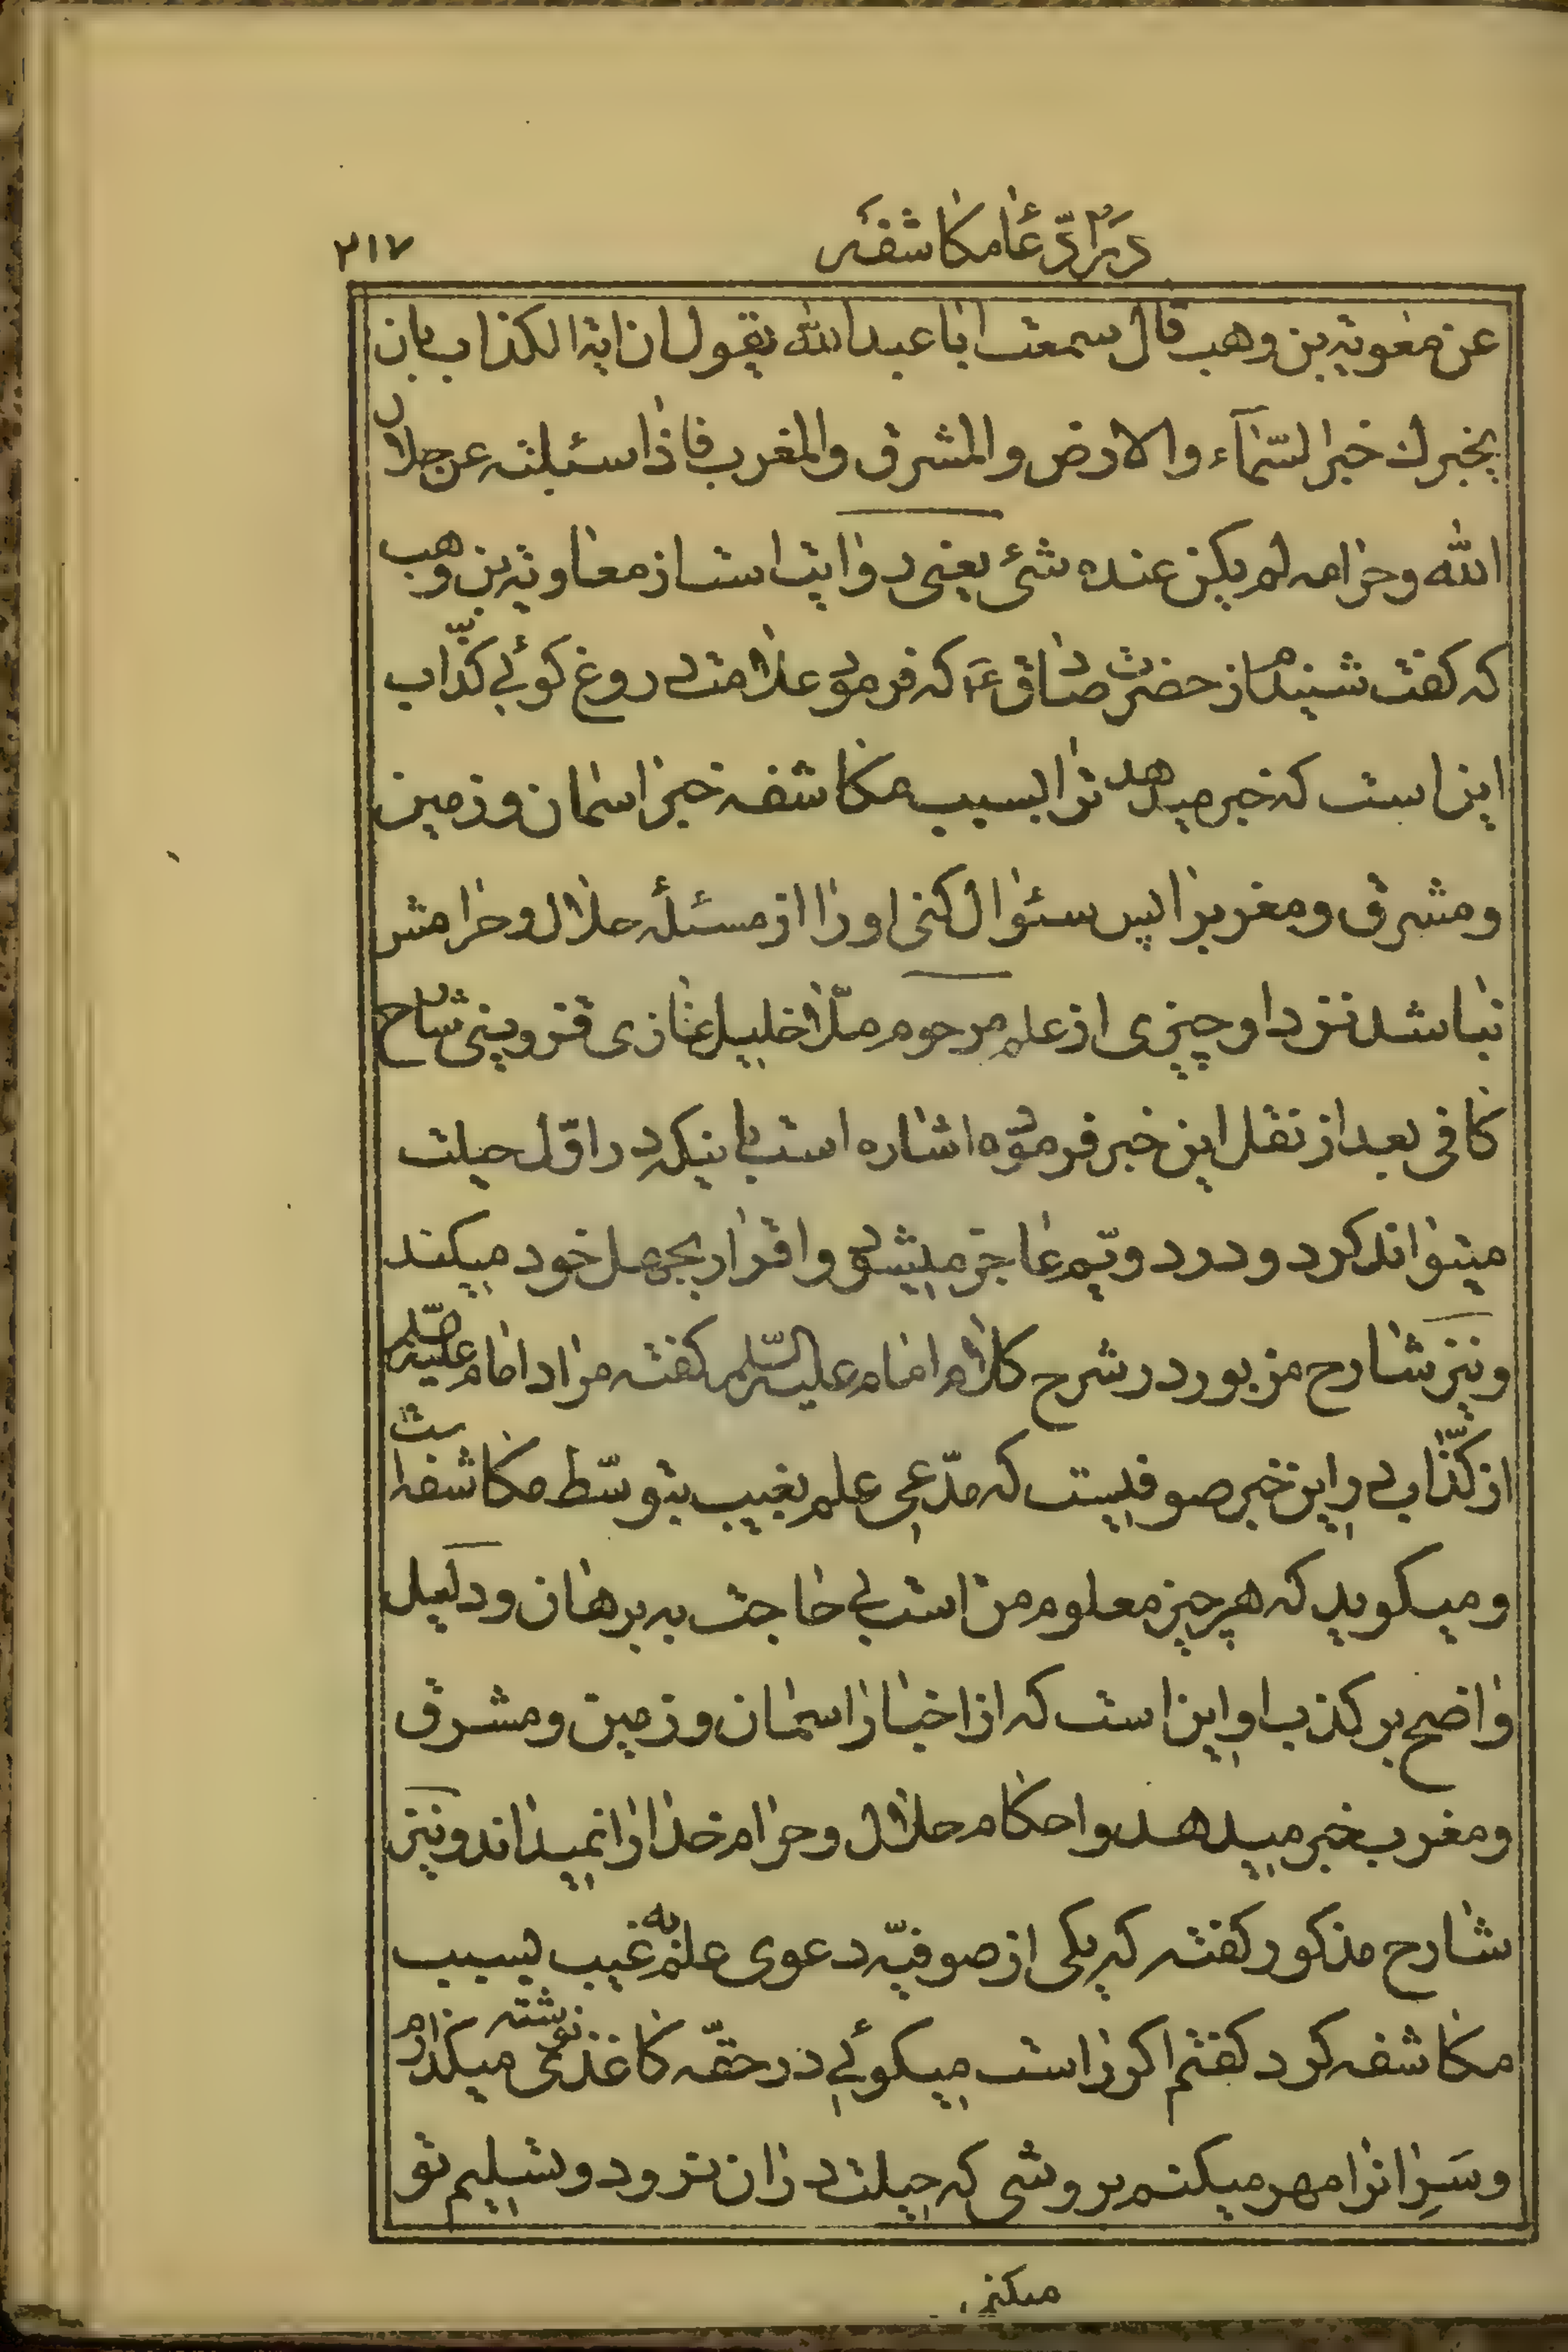 در رد ادعا مکاشفه
۳۱۷
عن معویة بن وهب قال سمعت ابا عبدالله یقول ان ایة الکذاب بان
یخبرک خبر السّمآء والارض والمشرق والمغرب فاذا سئلته عن حلال
الله وحرامه لم یکن عنده شئ یعنی روایت است از معاویة بن وهب
که گفت شنیدم از حضرت صادق ع که فرمود علامت دروغ گوئی کذّاب
این است که خبر میدهد ترا بسبب مکاشفه خبر اسمان و زمین
و مشرق و مغرب را پس سئوال کنی او را از مسئلهٔ حلال و حرامش
نباشد نزد او چیزی از علم مرحوم ملّا خلیل غازی قزوینی شارح
کافی بعد از نقل این خبر فرموده اشاره است باینکه در اوّل حیلت
میتواند کرد و در دویّم عاجز میشود و اقرار بجهل خود میکند
و نیز شارح مزبور در شرح کلام امام علیه السّلم گفته مراد امام علیه السّلم
از کذّاب در این خبر صوفیست که مدّعی علم بغیب بتوسّط مکاشفه است
و میگوید که هر چیز معلوم من است بی حاجت به برهان و دلیل
واضح بر کذب او این است که از اخبار اسمان و زمین و مشرق
و مغرب خبر میدهد و احکام حلال و حرام خدا را نمیداند و نیز
شارح مذکور گفته که یکی از صوفیّه دعوی علم به غیب بسبب
مکاشفه کرد گفتم اگر راست میگوئی در حقّه کاغذی نوشته میگذارم
و سَرِ انرا مهر میکنم بروشی که حیلت در ان نرود و تسلیم تو
میکنم